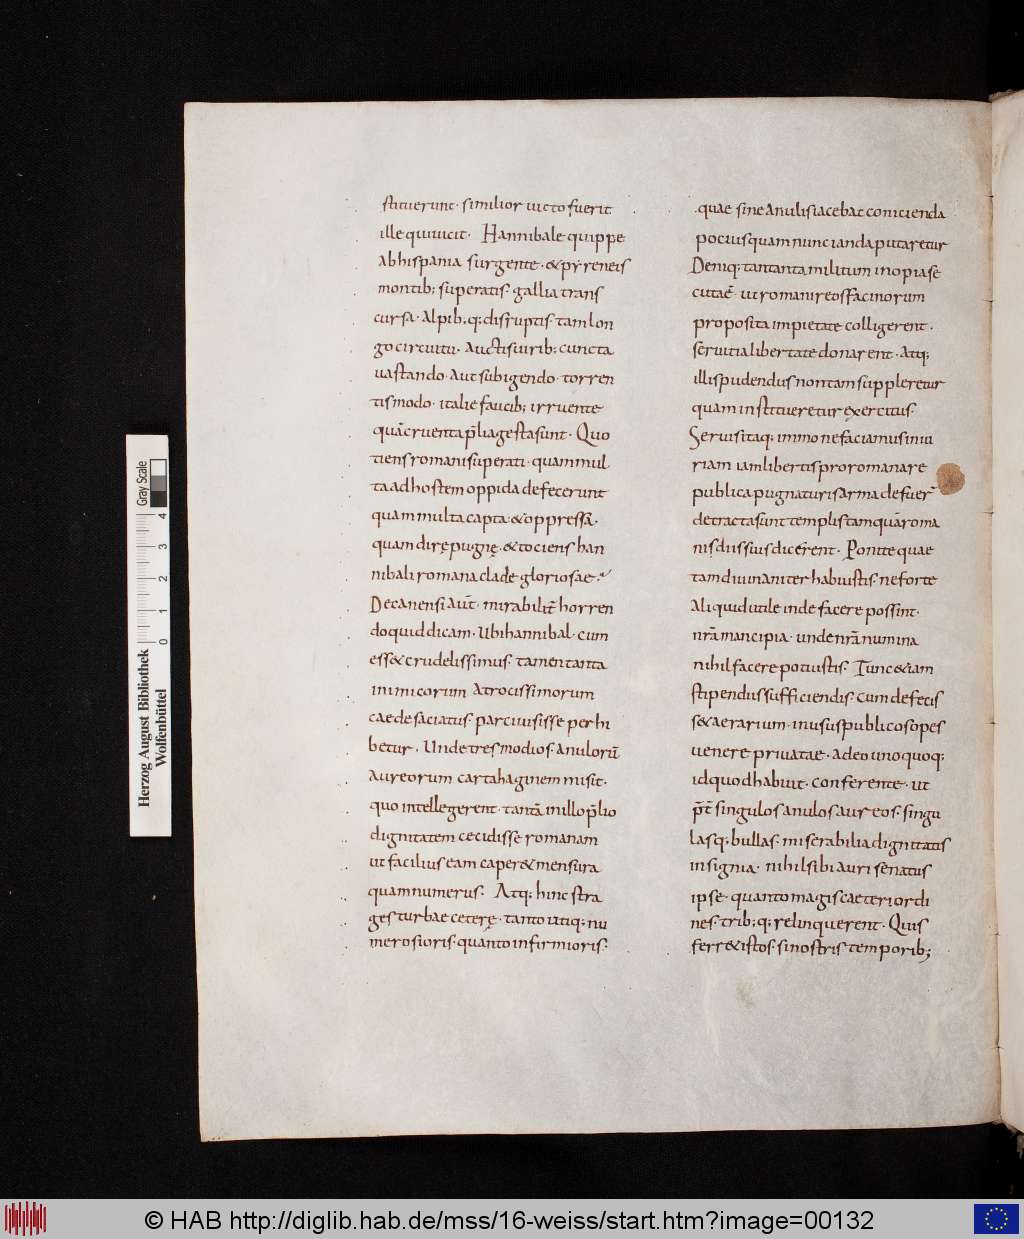 stituerunt· similior uicto fuerit
ille qui uicit· Hannibale quippe
Ab hispania surgente· & pyreneis
montib; superatis· gallia trans
cursa· Alpib;q; disruptis· tam lon
go circuitu· Auctis uirib; cuncta
uastando· Aut subigendo· torren
tis modo· italie faucib; irruente
quā cruenta p̄lia gesta sunt· Quo
tiens romani superati· quam mul
ta ad hostem oppida defecerunt
quam multa capta· & oppressa·
quam dirę pugnę· & tociens han
nibali romana clade gloriosae·
De canensi aut̄· mirabilit̄ horren
do quid dicam· Ubi hannibal· cum
ess& crudelissimus· tamen tanta
inimicorum Atrocissimorum
caede saciatus· parci iusisse perhi
betur· Unde tres modios· anulorū
Aureorum cartahaginem misit·
quo intellegerent· tantā in illo p̄lio
dignitatem cecidisse romanam
ut facilius eam caper& mensura
quam numerus· Atq; hinc stra
ges turbae ceterę· tanto utiq; nu
merosioris· quanto infirmioris·
quae sine anulis iacebat conicienda
pocius quam nuncianda putaretur
Deniq; tanta militum inopia se
cuta ē· ut romani reos facinorum
proposita impietate colligerent·
seruitia libertate donarent· Atq;
illis pudendus non tam suppleretur
quam institueretur exercitus·
Seruis itaq; immo ne faciamus iniu
riam iam libertis pro romana re
publica pugnaturis arma defuer̄
detracta sunt templis tamquā roma
nis diis suis dicerent· Ponite quae
tam diu inaniter habuistis· ne forte
Aliquid utile inde facere possint·
nr̄a mancipia· unde nr̄a numina
nihil facere potuistis· Tunc & iam
stipendiis sufficiendis· cum defecis
s& aerarium· in usus publicos opes
uenere priuatae· adeo uno quoq;
id quod habuit· conferente· ut
p̄t̄ singulos anulos aureos· singu
lasq; bullas· miserabilia dignitatis
insignia· nihil sibi auri senatus
ipse· quanto magis caeteri ordi
nes· trib;q; relinquerent· Quis
ferr& istos· si nostris temporib;
Herzog August Bibliothek
Wolfenbüttel
0 1 2 3 4
Gray Scale
© HAB http://diglib.hab.de/mss/16-weiss/start.htm?image=00132